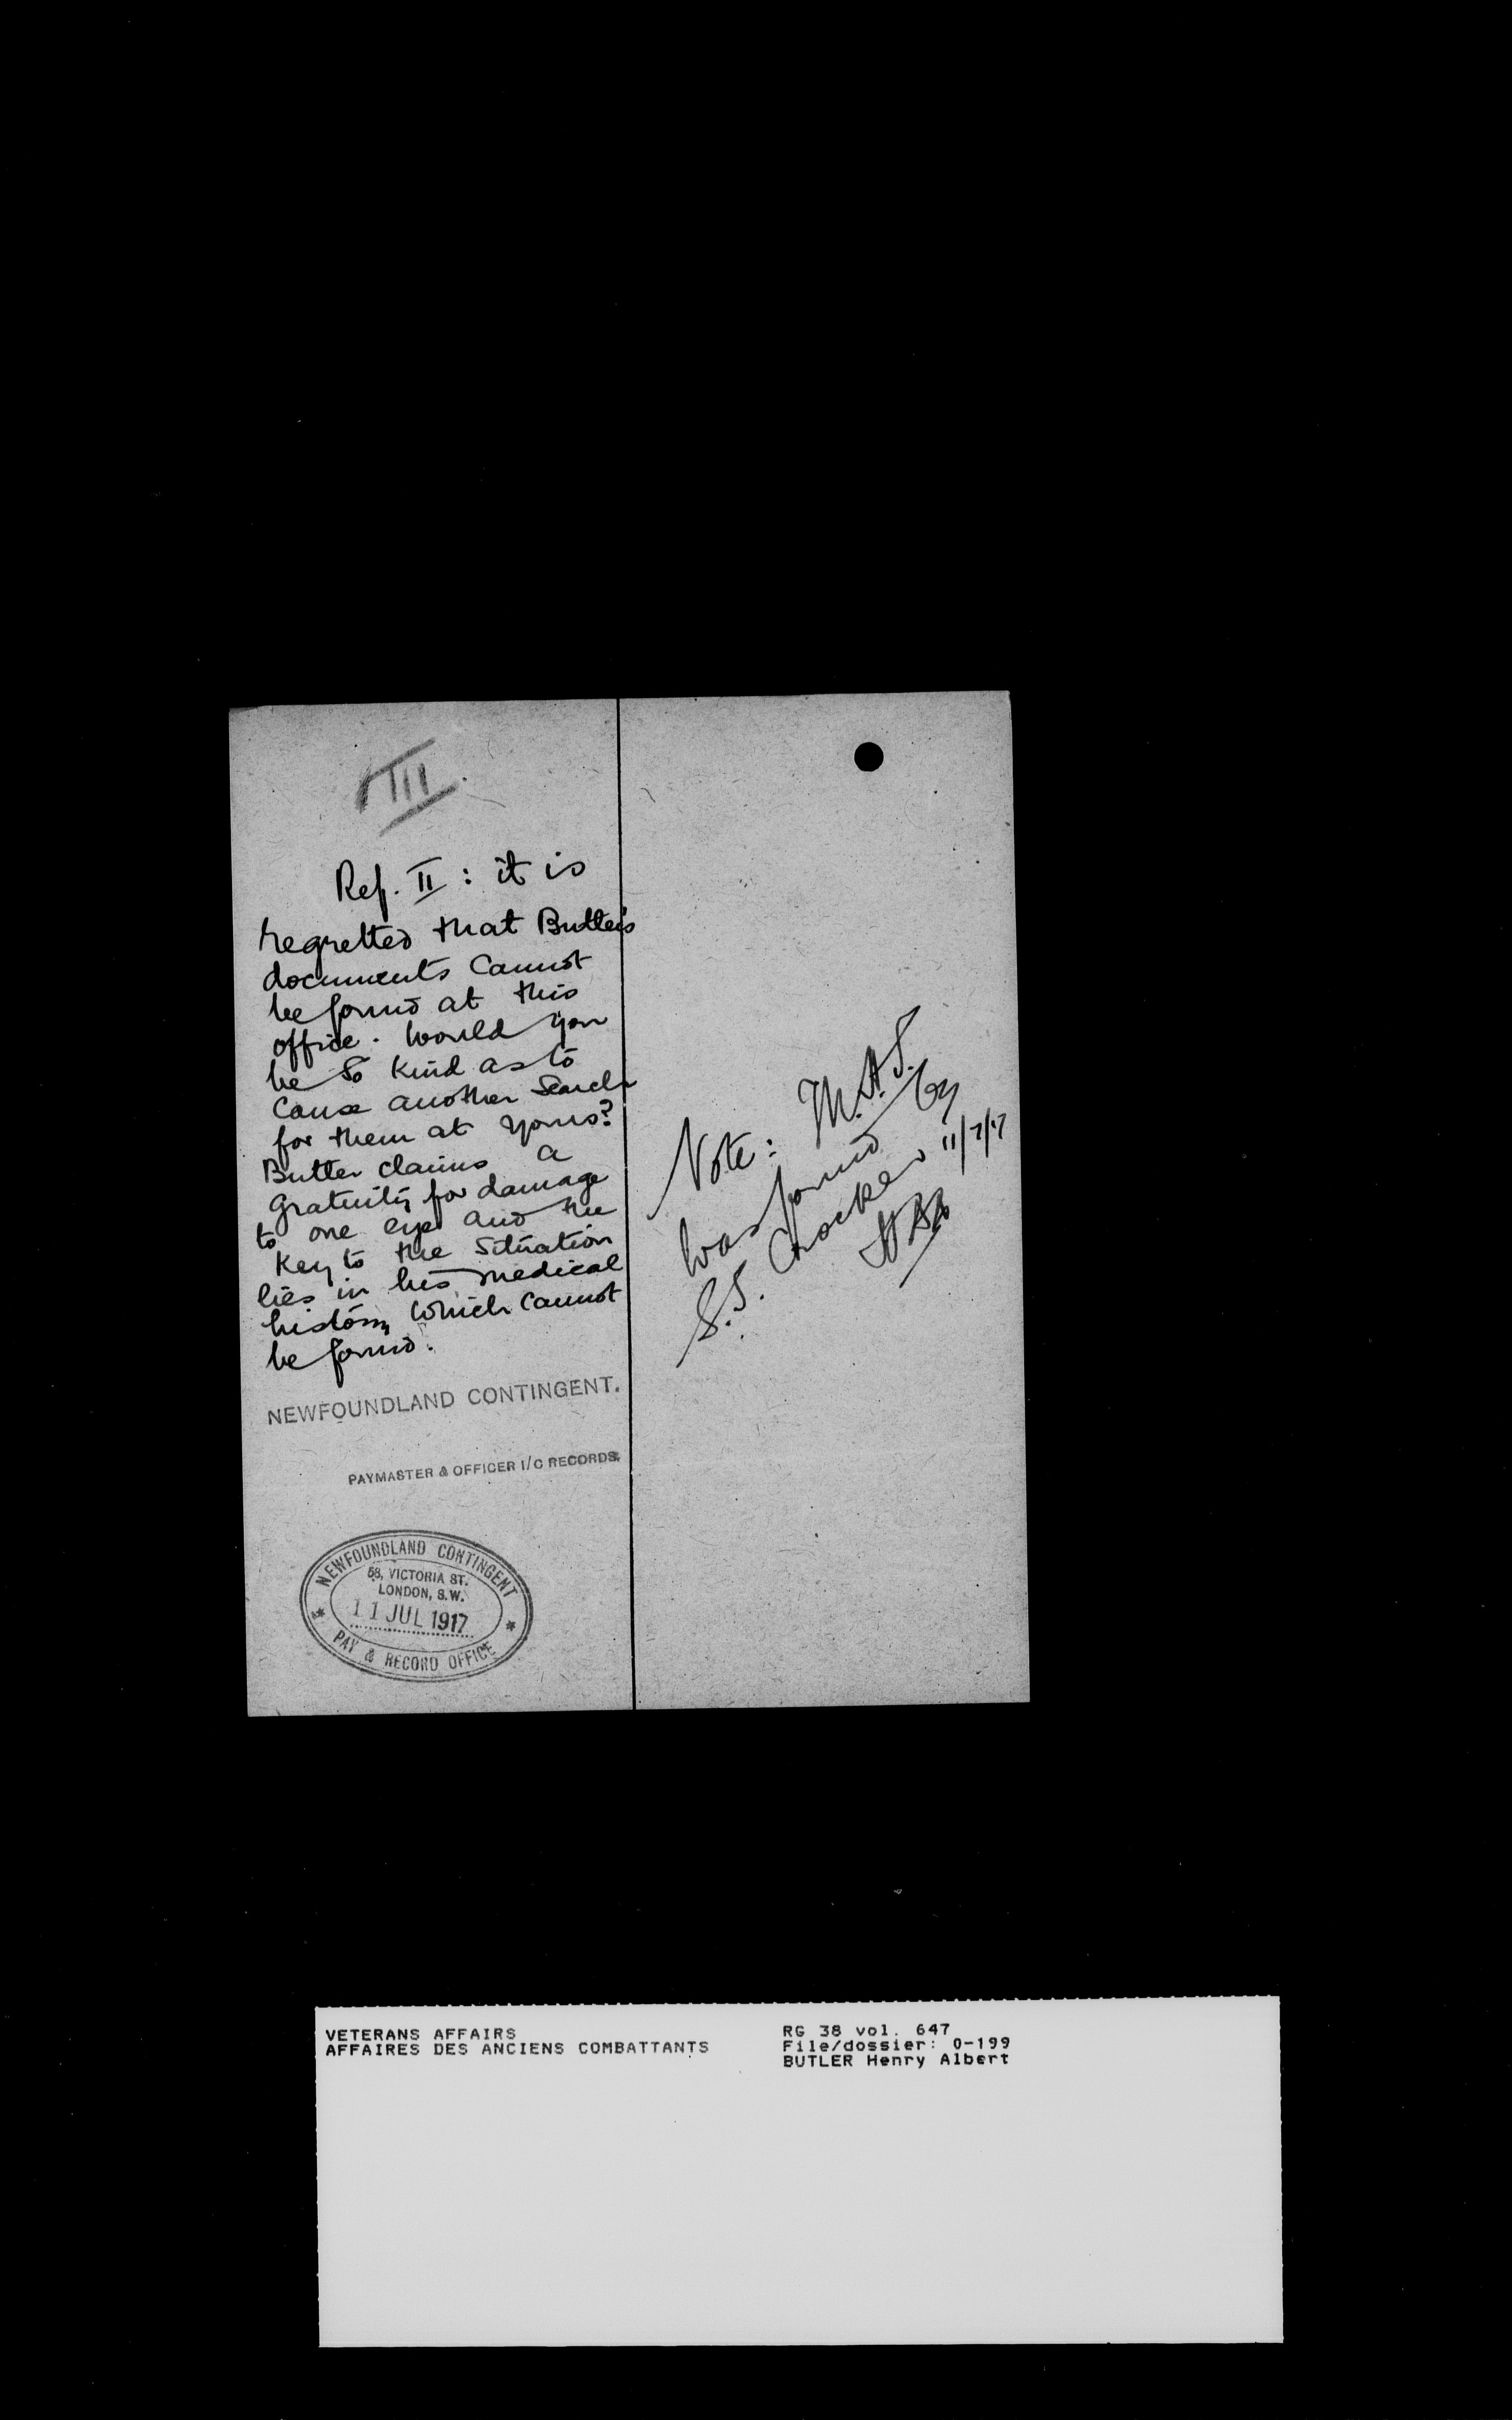 III
Ref. II : it is
regretted that Butler's
documents cannot
be found at this
office. Would you
be so kind as to
cause another search
for them at yours?
Butler claims a
gratuity for damage
to one eye and the
key to the situation
lies in his medical
history which cannot
be found.
NEWFOUNDLAND CONTINGENT.
PAYMASTER & OFFICER I/C RECORDS.
NEWFOUNDLAND CONTINGENT
58, VICTORIA ST.
LONDON, S.W.
11 JUL 1917
PAY & RECORD OFFICE
Note: M.H.S.
was found by
S.S. Crocker 11/7/17
VETERANS AFFAIRS
AFFAIRES DES ANCIENS COMBATTANTS
RG 38 vol. 647
File/dossier: 0-199
BUTLER Henry Albert